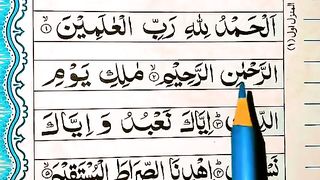 اَلْحَمْدُ لِلّٰهِ رَبِّ الْعٰلَمِيْنَ ۝١
الرَّحْمٰنِ الرَّحِيْمِ ۝٢ مٰلِكِ يَوْمِ
اِيَّاكَ نَعْبُدُ وَ اِيَّاكَ
اِهْدِنَا الصِّرَاطَ الْمُسْتَقِيْمَ ۝٥